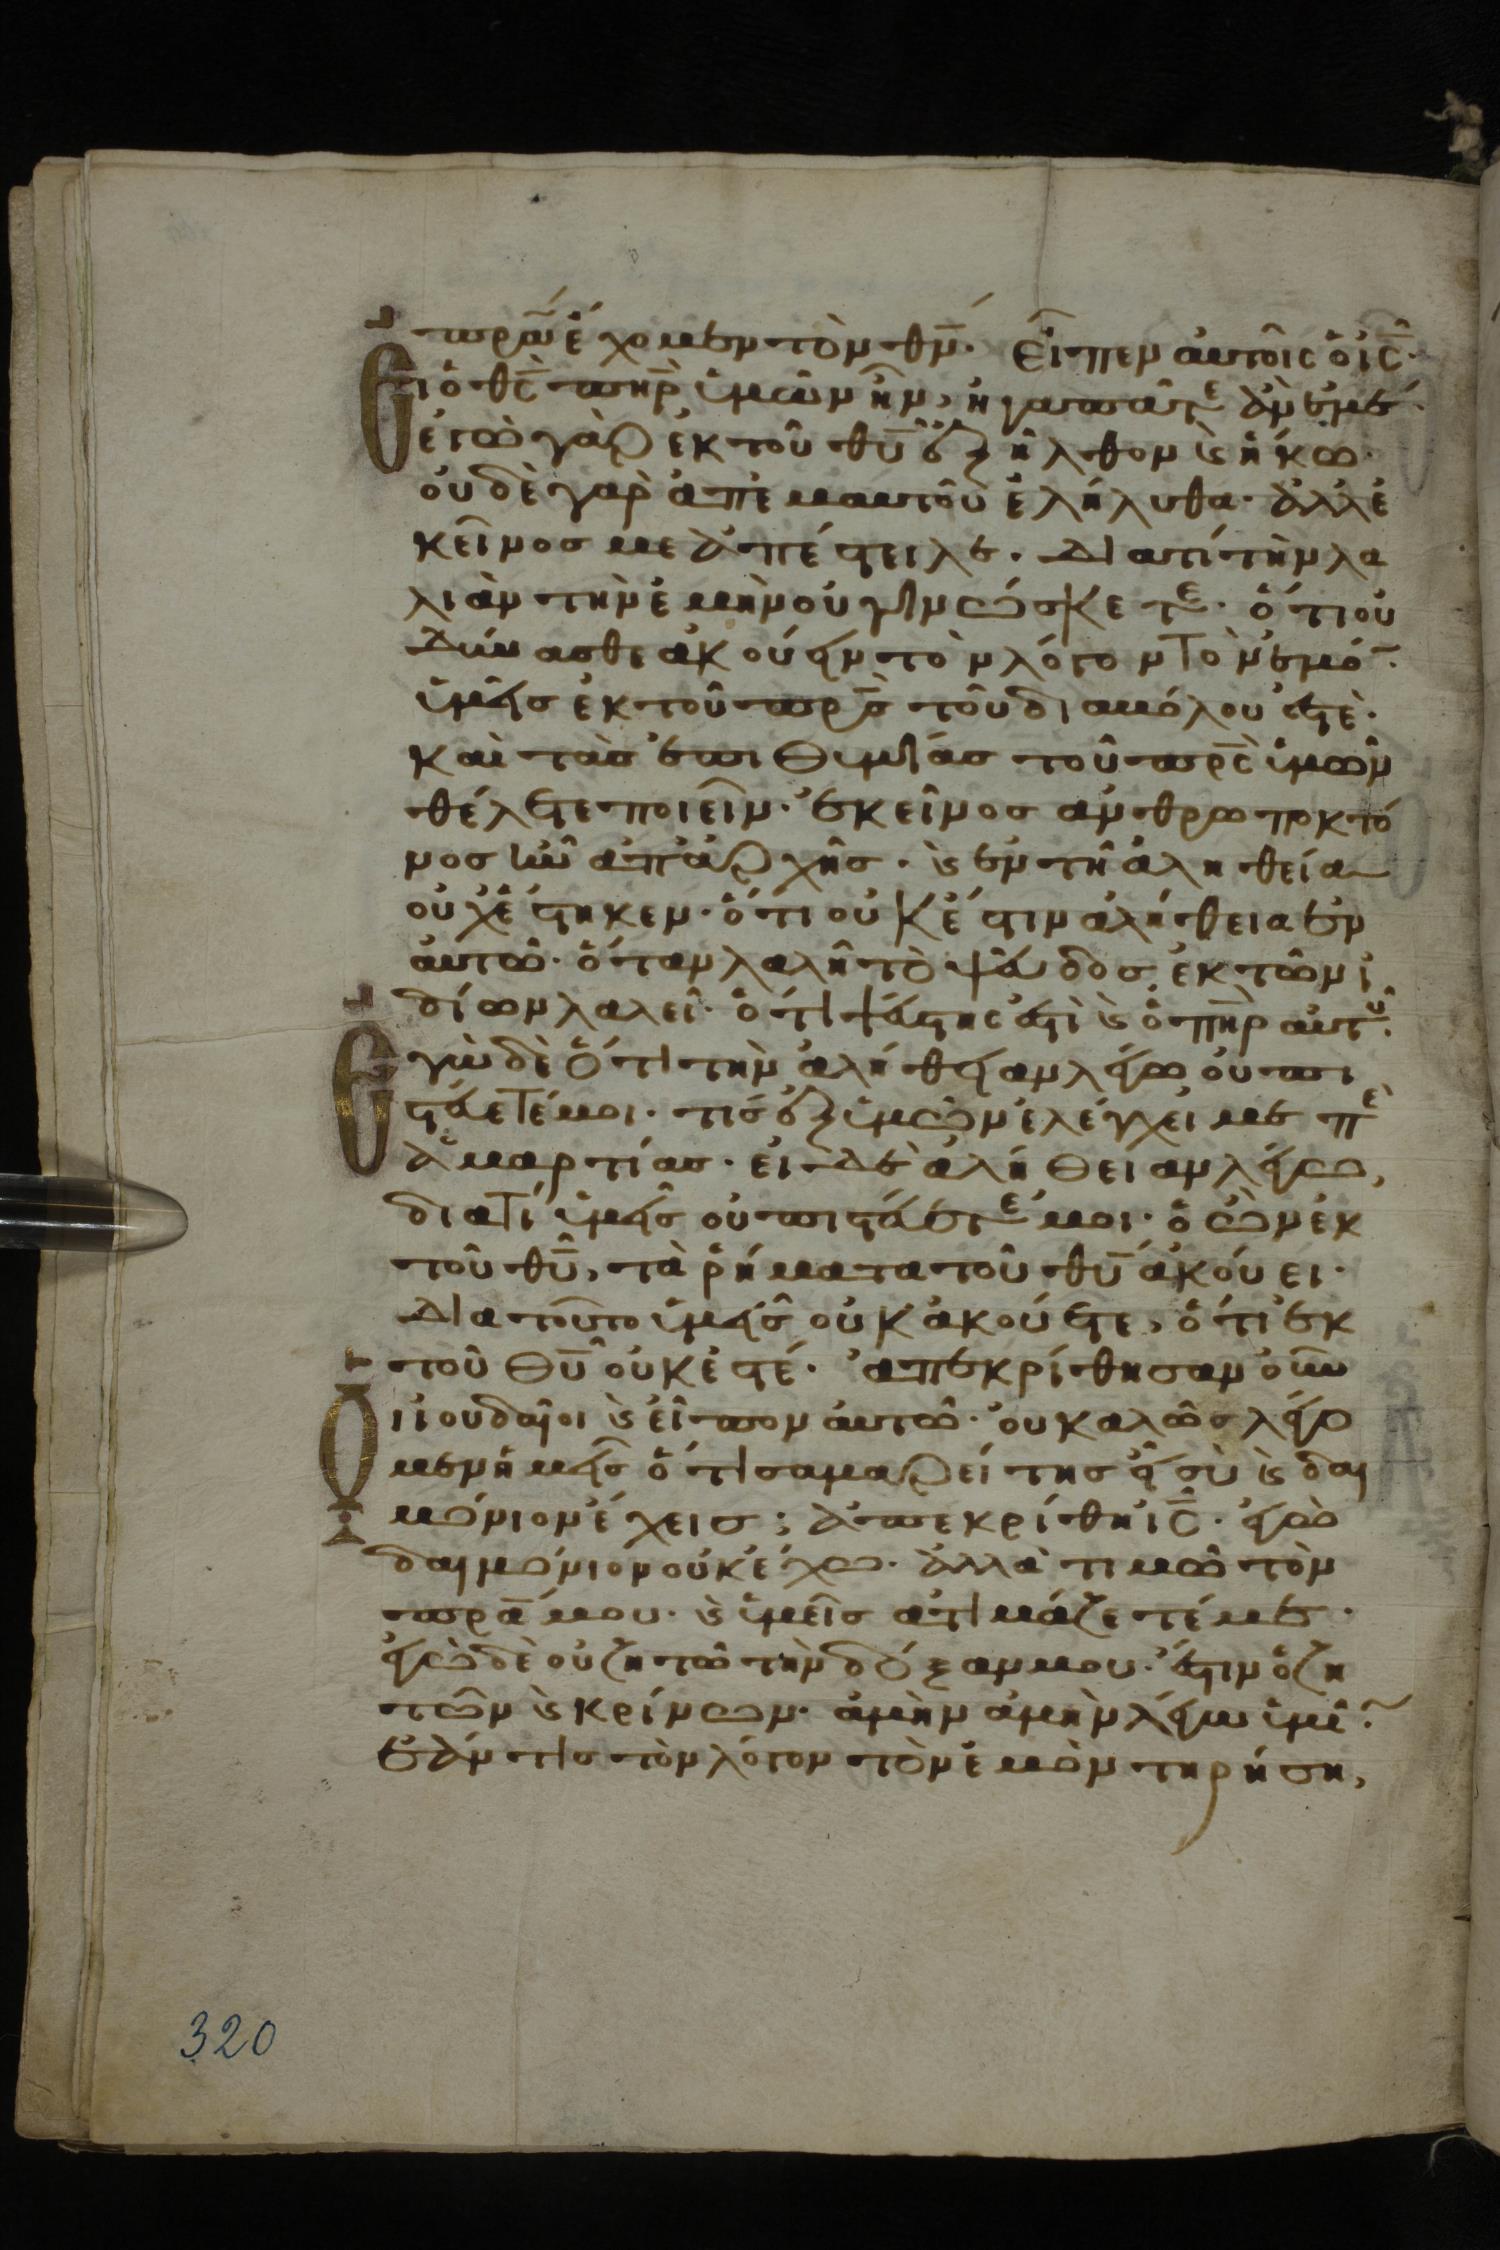 πρ̅α ἔχομεν τὸν θν̅· Εἶπεν αὐτοῖς ὁ ις̅·
Εἰ ὁ θς̅ πη̅ρ ὑμῶν ἦν, ἠγαπᾶτε ἂν ἐμέ·
ἐγὼ γὰρ ἐκ τοῦ θυ̅ ἐξῆλθον καὶ ἥκω·
οὐδὲ γὰρ ἀπ' ἐμαυτοῦ ἐλήλυθα· ἀλλ' ἐ
κεῖνός με ἀπέστειλε. Διατί τὴν λα
λιὰν τὴν ἐμὴν οὐ γινώσκετε· ὅτι οὐ
δύνασθε ἀκούειν τὸν λόγον τὸν ἐμό̅·
ὑμεῖς ἐκ τοῦ πρ̅ς τοῦ διαβόλου ἐστὲ·
καὶ τὰς ἐπιθυμίας τοῦ πρ̅ς ὑμῶν
θέλετε ποιεῖν· ἐκεῖνος ἀνθρωποκτό
νος ἦν ἀπ' ἀρχῆς· καὶ ἐν τῇ ἀληθεία
οὐχ ἕστηκεν· ὅτι οὐκ ἔστιν ἀλήθεια ἐν
αὐτῶ· ὅταν λαλῆ τὸ ψεῦδος ἐκ τῶν ἰ
δίων λαλεῖ· ὅτι ψεύστης ἐστὶ καὶ ὁ πη̅ρ αὐτοῦ·
Ἐγὼ δὲ ὅτι τὴν ἀλήθειαν λέγω οὐ πι
στεύετέ μοι· τίς ἐξ ὑμῶν ἐλέγχει με πε
ἁμαρτίας· εἰ δὲ ἀλήθειαν λέγω,
διατί ὑμεῖς οὐ πιστεύετέ μοι· ὁ ὢν ἐκ
τοῦ θυ̅, τὰ ῥήματα τοῦ θυ̅ ἀκούει·
Διατοῦτο ὑμεῖς οὐκ ἀκούετε, ὅτι ἐκ
τοῦ θυ̅ οὐκ ἐστέ· ἀπεκρίθησαν οὖν
Οἱ ἰουδαῖοι καὶ εἶπον αὐτῶ· οὐ καλῶς λέγο
μεν ἡμεῖς ὅτι σαμαρείτης εἶ σὺ καὶ δαι
μόνιον ἔχεις; ἀπεκρίθη ις̅· ἐγὼ
δαιμόνιον οὐκ ἔχω· ἀλλὰ τιμῶ τὸν
πρ̅α μου· καὶ ὑμεῖς ἀτιμάζετέ με·
ἐγὼ δὲ οὐ ζητῶ τὴν δόξαν μου· ἔστιν ὁ ζη
τῶν καὶ κρίνων· ἀμὴν ἀμὴν λέγω ὑμῖ̅·
ἐάν τις τὸν λόγον τὸν ἐμὸν τηρήση,
320